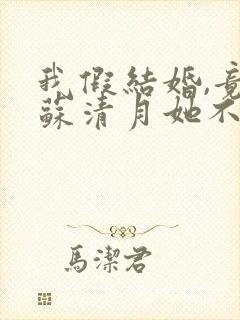 我假結婚,竟
蘇清月她不
馬潔君